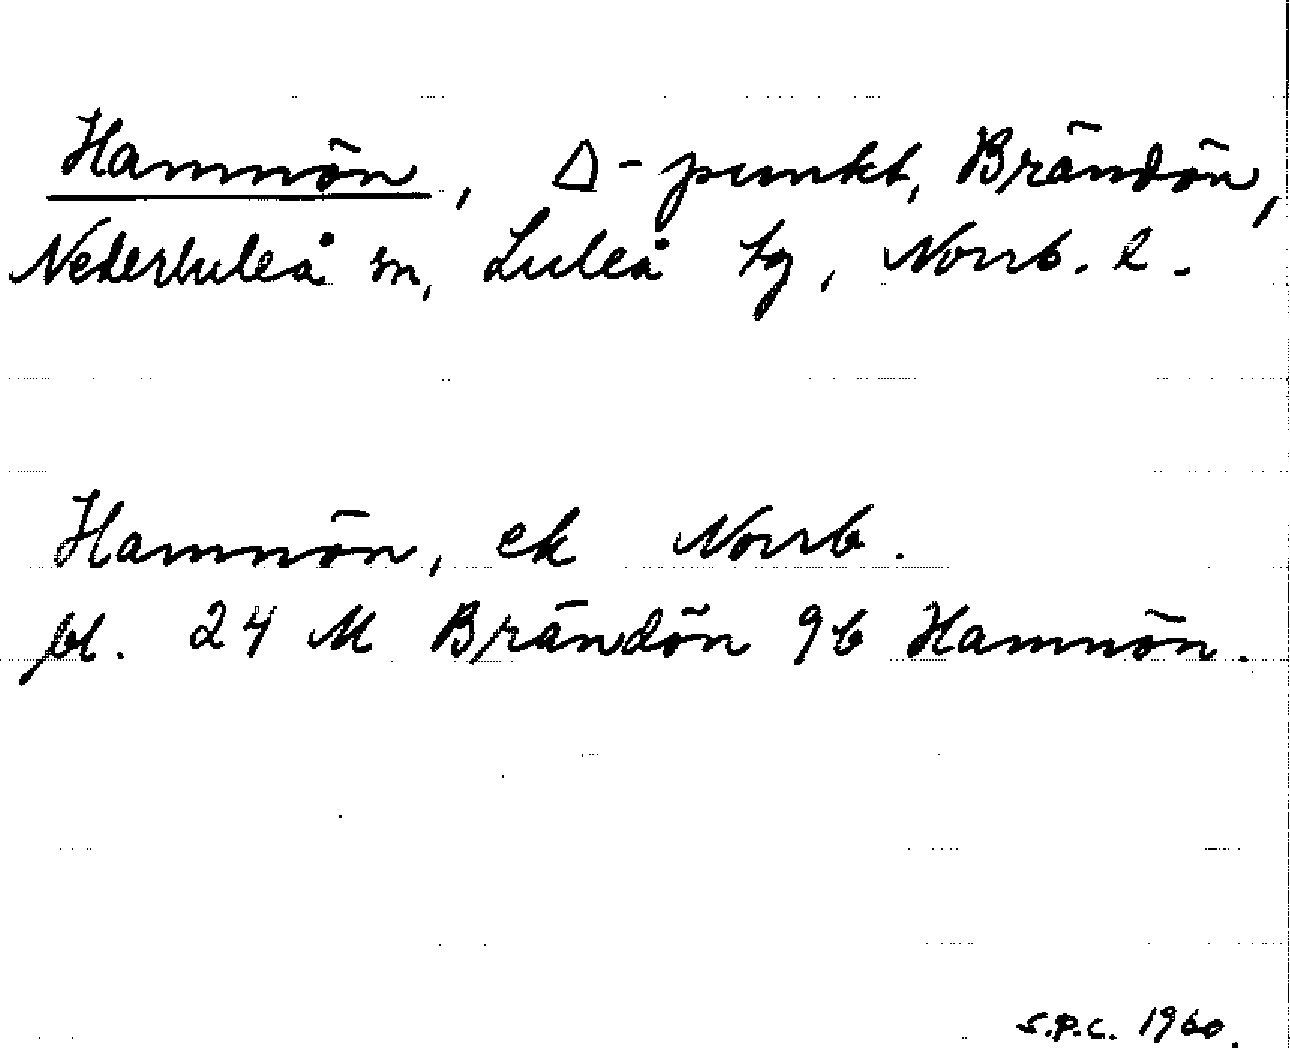 Hamnön, Δ-punkt, Brändön,
Nederluleå sn, Luleå tg, Norrb. l.
Hamnön, ek Norrb.
bl. 24 M Brändön 9b Hamnön.
S.P.C. 1960.